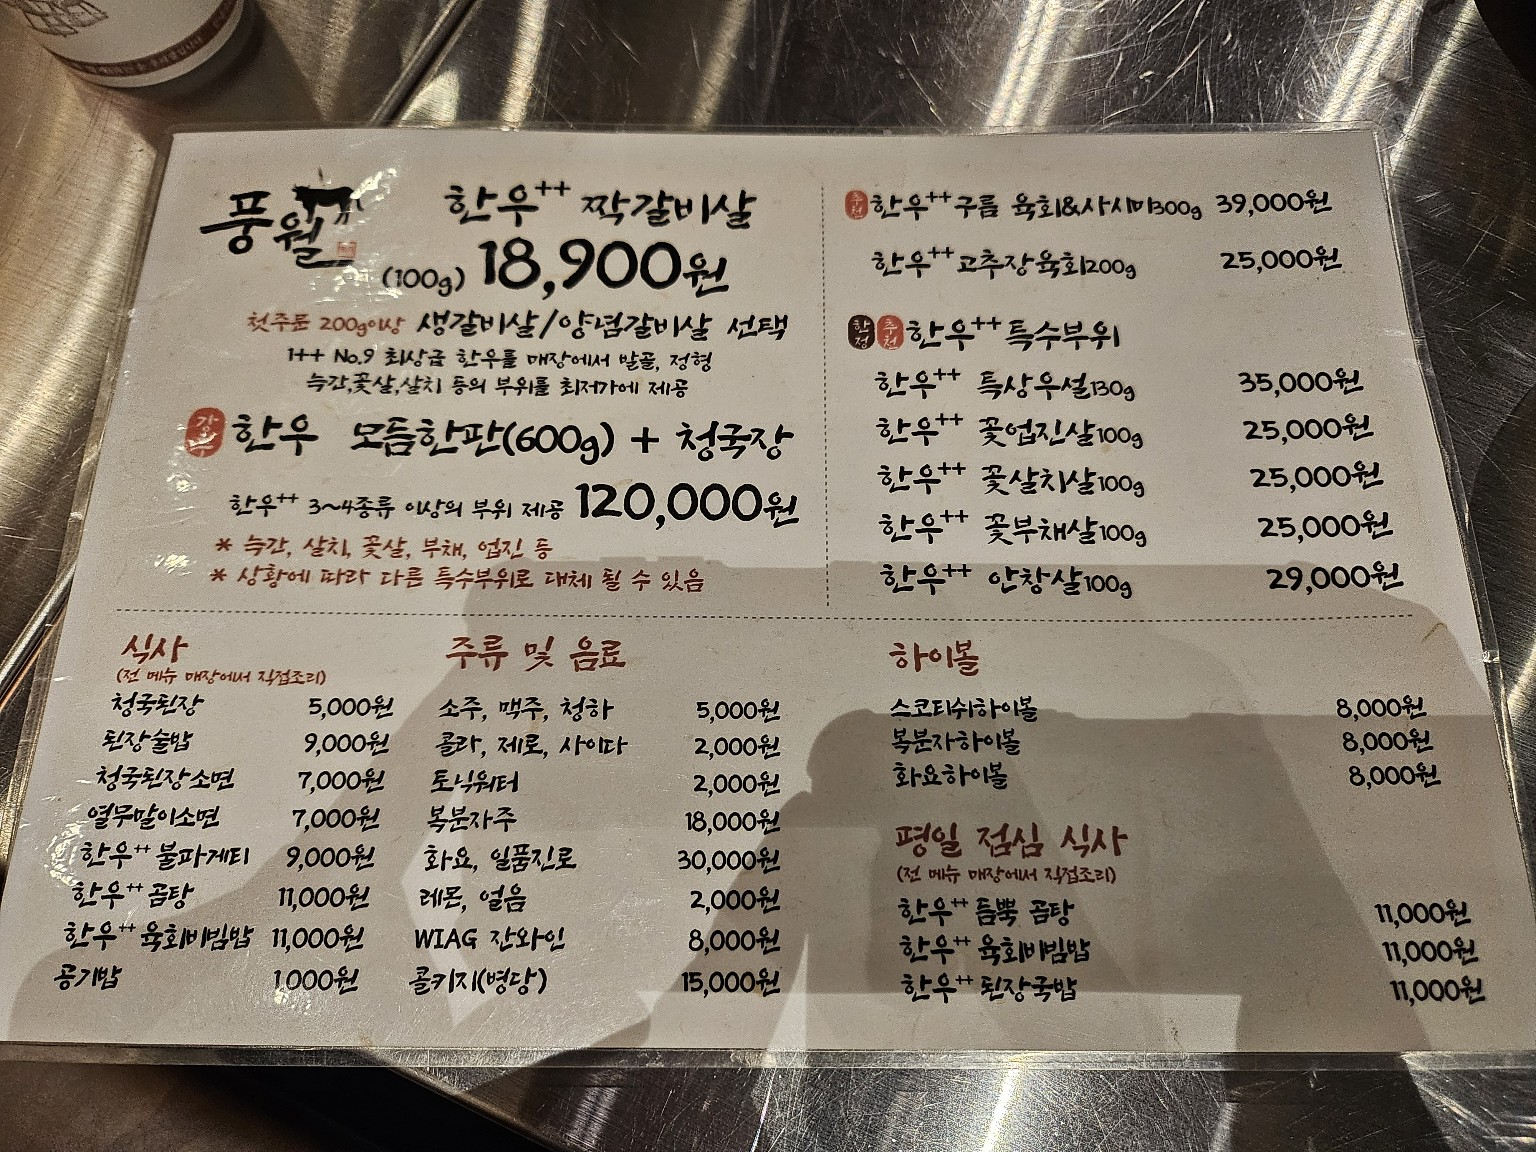 풍월
한우++ 짝갈비살
(100g) 18,900원
첫주문 200g이상 생갈비살/양념갈비살 선택
1++ No.9 최상급 한우를 매장에서 발골, 정형
늑간,꽃살,살치 등의 부위를 최저가에 제공
강추 한우 모듬한판(600g) + 청국장
한우++ 3~4종류 이상의 부위 제공 120,000원
* 늑간, 살치, 꽃살, 부채, 업진 등
* 상황에 따라 다른 특수부위로 대체 될 수 있음
추천 한우++구름 육회&사시미300g 39,000원
한우++고추장육회200g 25,000원
한정 추천 한우++특수부위
한우++ 특상우설130g 35,000원
한우++ 꽃업진살100g 25,000원
한우++ 꽃살치살100g 25,000원
한우++ 꽃부채살100g 25,000원
한우++ 안창살100g 29,000원
식사
(전 메뉴 매장에서 직접조리)
청국된장 5,000원
된장술밥 9,000원
청국된장소면 7,000원
열무말이소면 7,000원
한우++불파게티 9,000원
한우++곰탕 11,000원
한우++육회비빔밥 11,000원
공기밥 1,000원
주류 및 음료
소주, 맥주, 청하 5,000원
콜라, 제로, 사이다 2,000원
토닉워터 2,000원
복분자주 18,000원
화요, 일품진로 30,000원
레몬, 얼음 2,000원
WIAG 잔와인 8,000원
콜키지(병당) 15,000원
하이볼
스코티쉬하이볼 8,000원
복분자하이볼 8,000원
화요하이볼 8,000원
평일 점심 식사
(전 메뉴 매장에서 직접조리)
한우++듬뿍 곰탕 11,000원
한우++육회비빔밥 11,000원
한우++된장국밥 11,000원